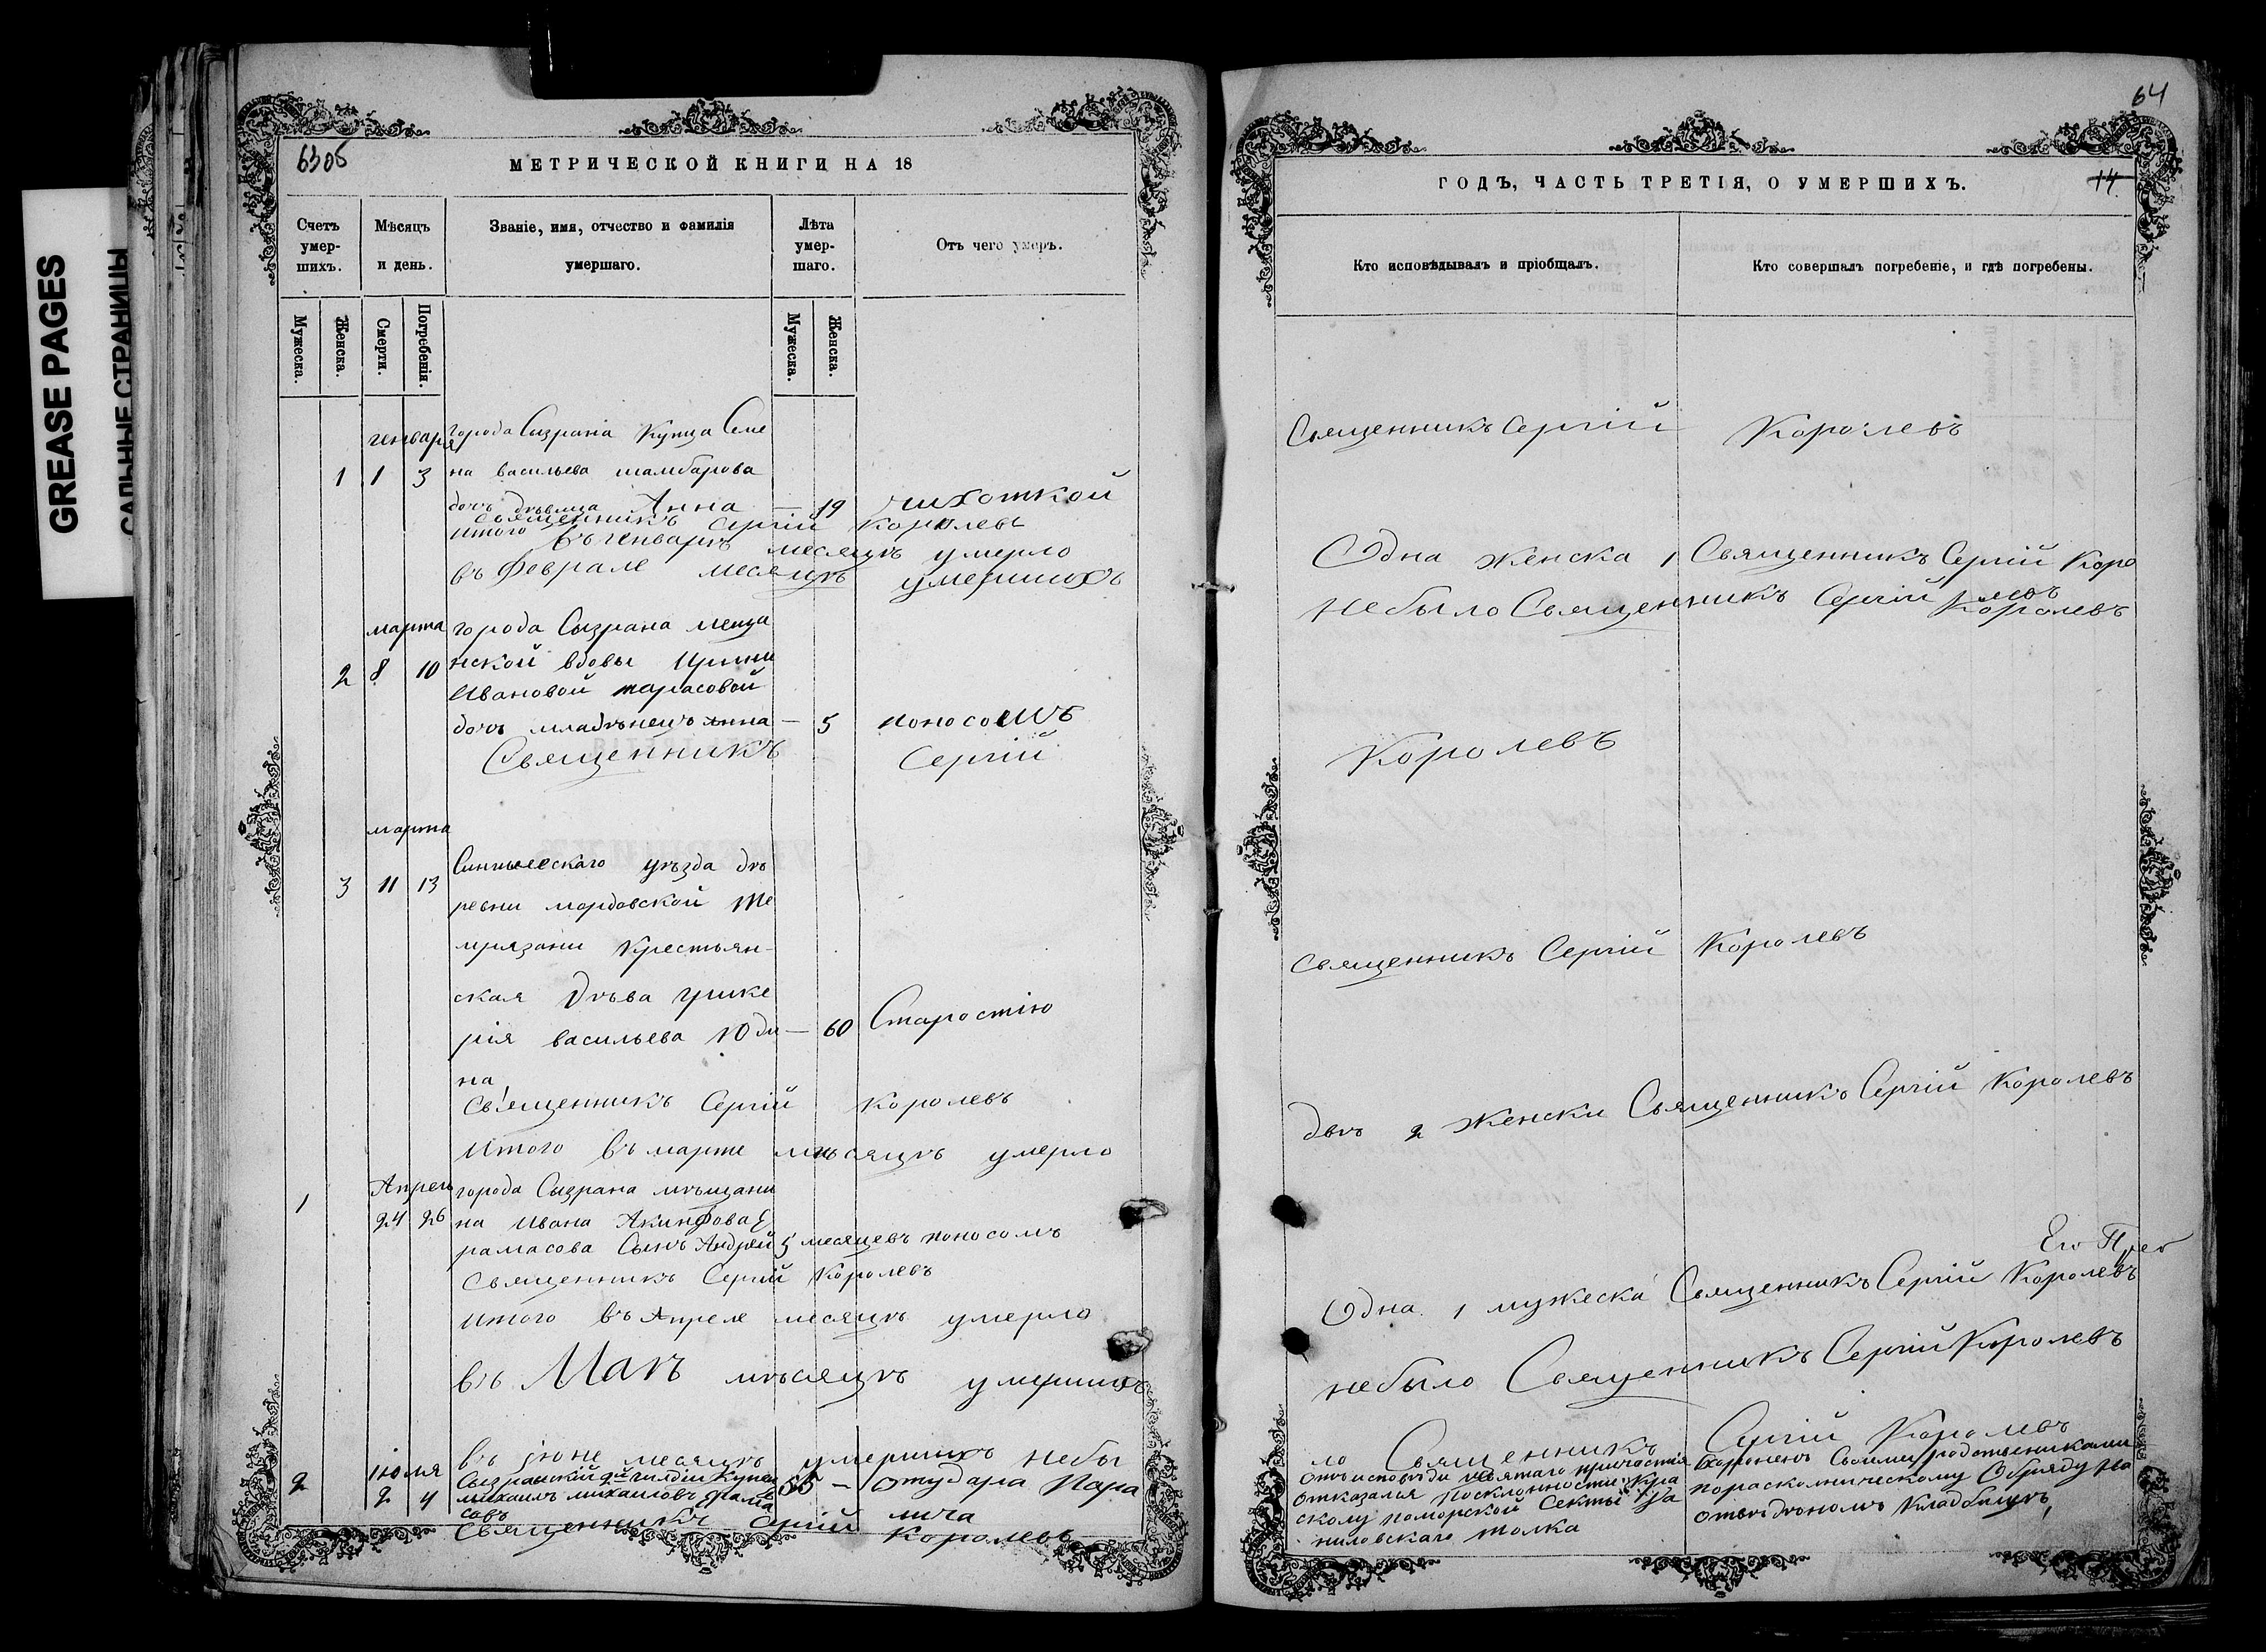 GREASE PAGES
САЛЬНЫЕ СТРАНИЦЫ
6305
МЕТРИЧЕСКОЙ КНИГИ НА 18
Счетъ умер-шихъ.
Мѣсяцъ и день.
Званіе, имя, отчество и фамилія умершаго.
Лѣта умер-шаго.
Отъ чего умеръ.
Мужеска.
Женска.
Смерти.
Погребенія.
Мужеска.
Женска.
генваря города Сызрана Купца Семе
1 1 3 на васильева шамбарова
дочь дѣвица Анна — 19 чихоткой
священникъ Сергій Королевъ
итого въ генварѣ месяцѣ умерло
въ Феврале месяцѣ умершихъ
марта города Сызрана меща
2 8 10 нской вдовы Ирины
Ивановой тарасовой
дочь младѣнецъ Анна — 5 поносомъ
Священникъ Сергій
марта
уѣзда дѣ
3 11 13 ревни мордовской те
мрязани Крестьян-
ская дѣва
рія васильева Юди — 60 Старостію
на
священникъ Сергій Королевъ
Итого въ марте мѣсяцѣ умерло
Апрель города Сызрана мѣщани
1 24 26 на Ивана Акинфова
сынъ Андрей 5 месяцевъ поносомъ
Священникъ Сергій Королевъ
итого въ Апреле месяцѣ умерло
въ Маѣ мѣсяцѣ умершихъ
въ іюне месяцѣ умершихъ небы
іюля Сызранскій 2й гилдіи Купец
2 2 4 михаилъ михаиловъ 55 — Отудара Пара
совъ лича
Священникъ Сергій Королевъ
64
ГОДЪ, ЧАСТЬ ТРЕТІЯ, О УМЕРШИХЪ.
14
Кто исповѣдывалъ и пріобщалъ.
Кто совершалъ погребеніе, и гдѣ погребены.
Священникъ Сергій Королевъ
Одна женска 1 Священникъ Сергій Коро
левъ
небыло Священникъ Сергій Королевъ
Королевъ
священникъ Сергій Королевъ
двѣ 2 женски Священникъ Сергій Королевъ
Одна 1 мужеска Священникъ Сергій Королевъ
небыло Священникъ Сергій Королевъ
ло Священникъ Сергій Королевъ
отъ исповѣди святаго причастія похороненъ Своими родственниками
отказался посклонности Къра пораскольническому Обряду на
сколу поморской Секты отведѣномъ Кладбищѣ,
ниловскаго толка